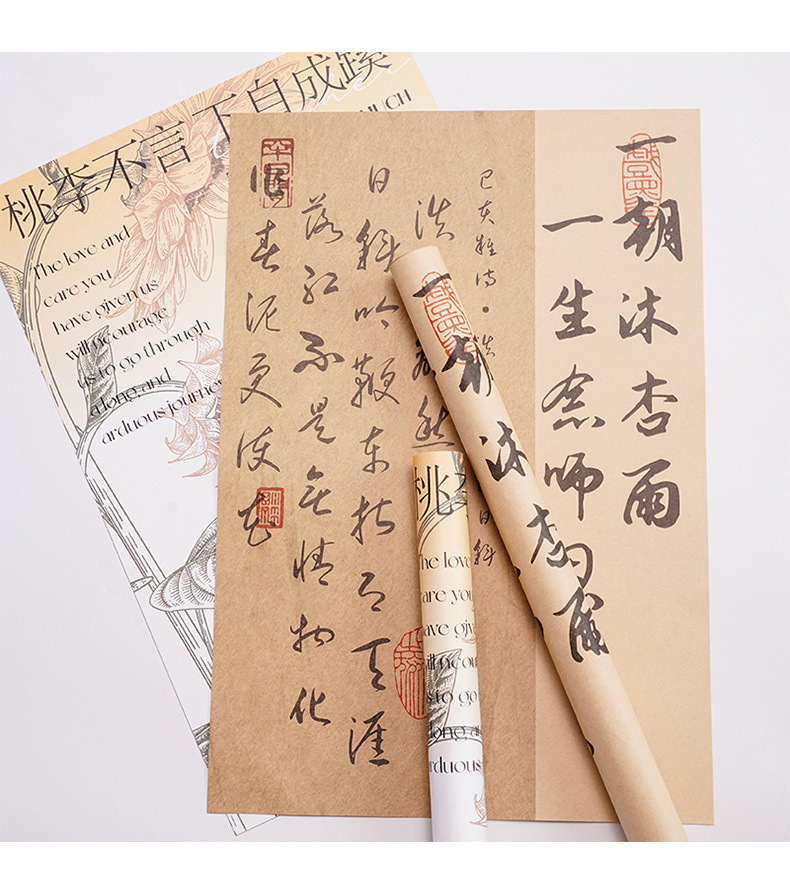 桃李不言 下自成蹊
MUCH
The love and
care you
have given us
will ncourage
us to go through
alone,and
arduous journey
一朝沐杏雨
一生念师
己亥雜诗·
浩
日斜吟鞭东指即天涯
落红不是无情物化
作春泥更护花
一朝沐杏雨
桃
The love
care you
have giv
will ncou
us to go
alone, an
arduous